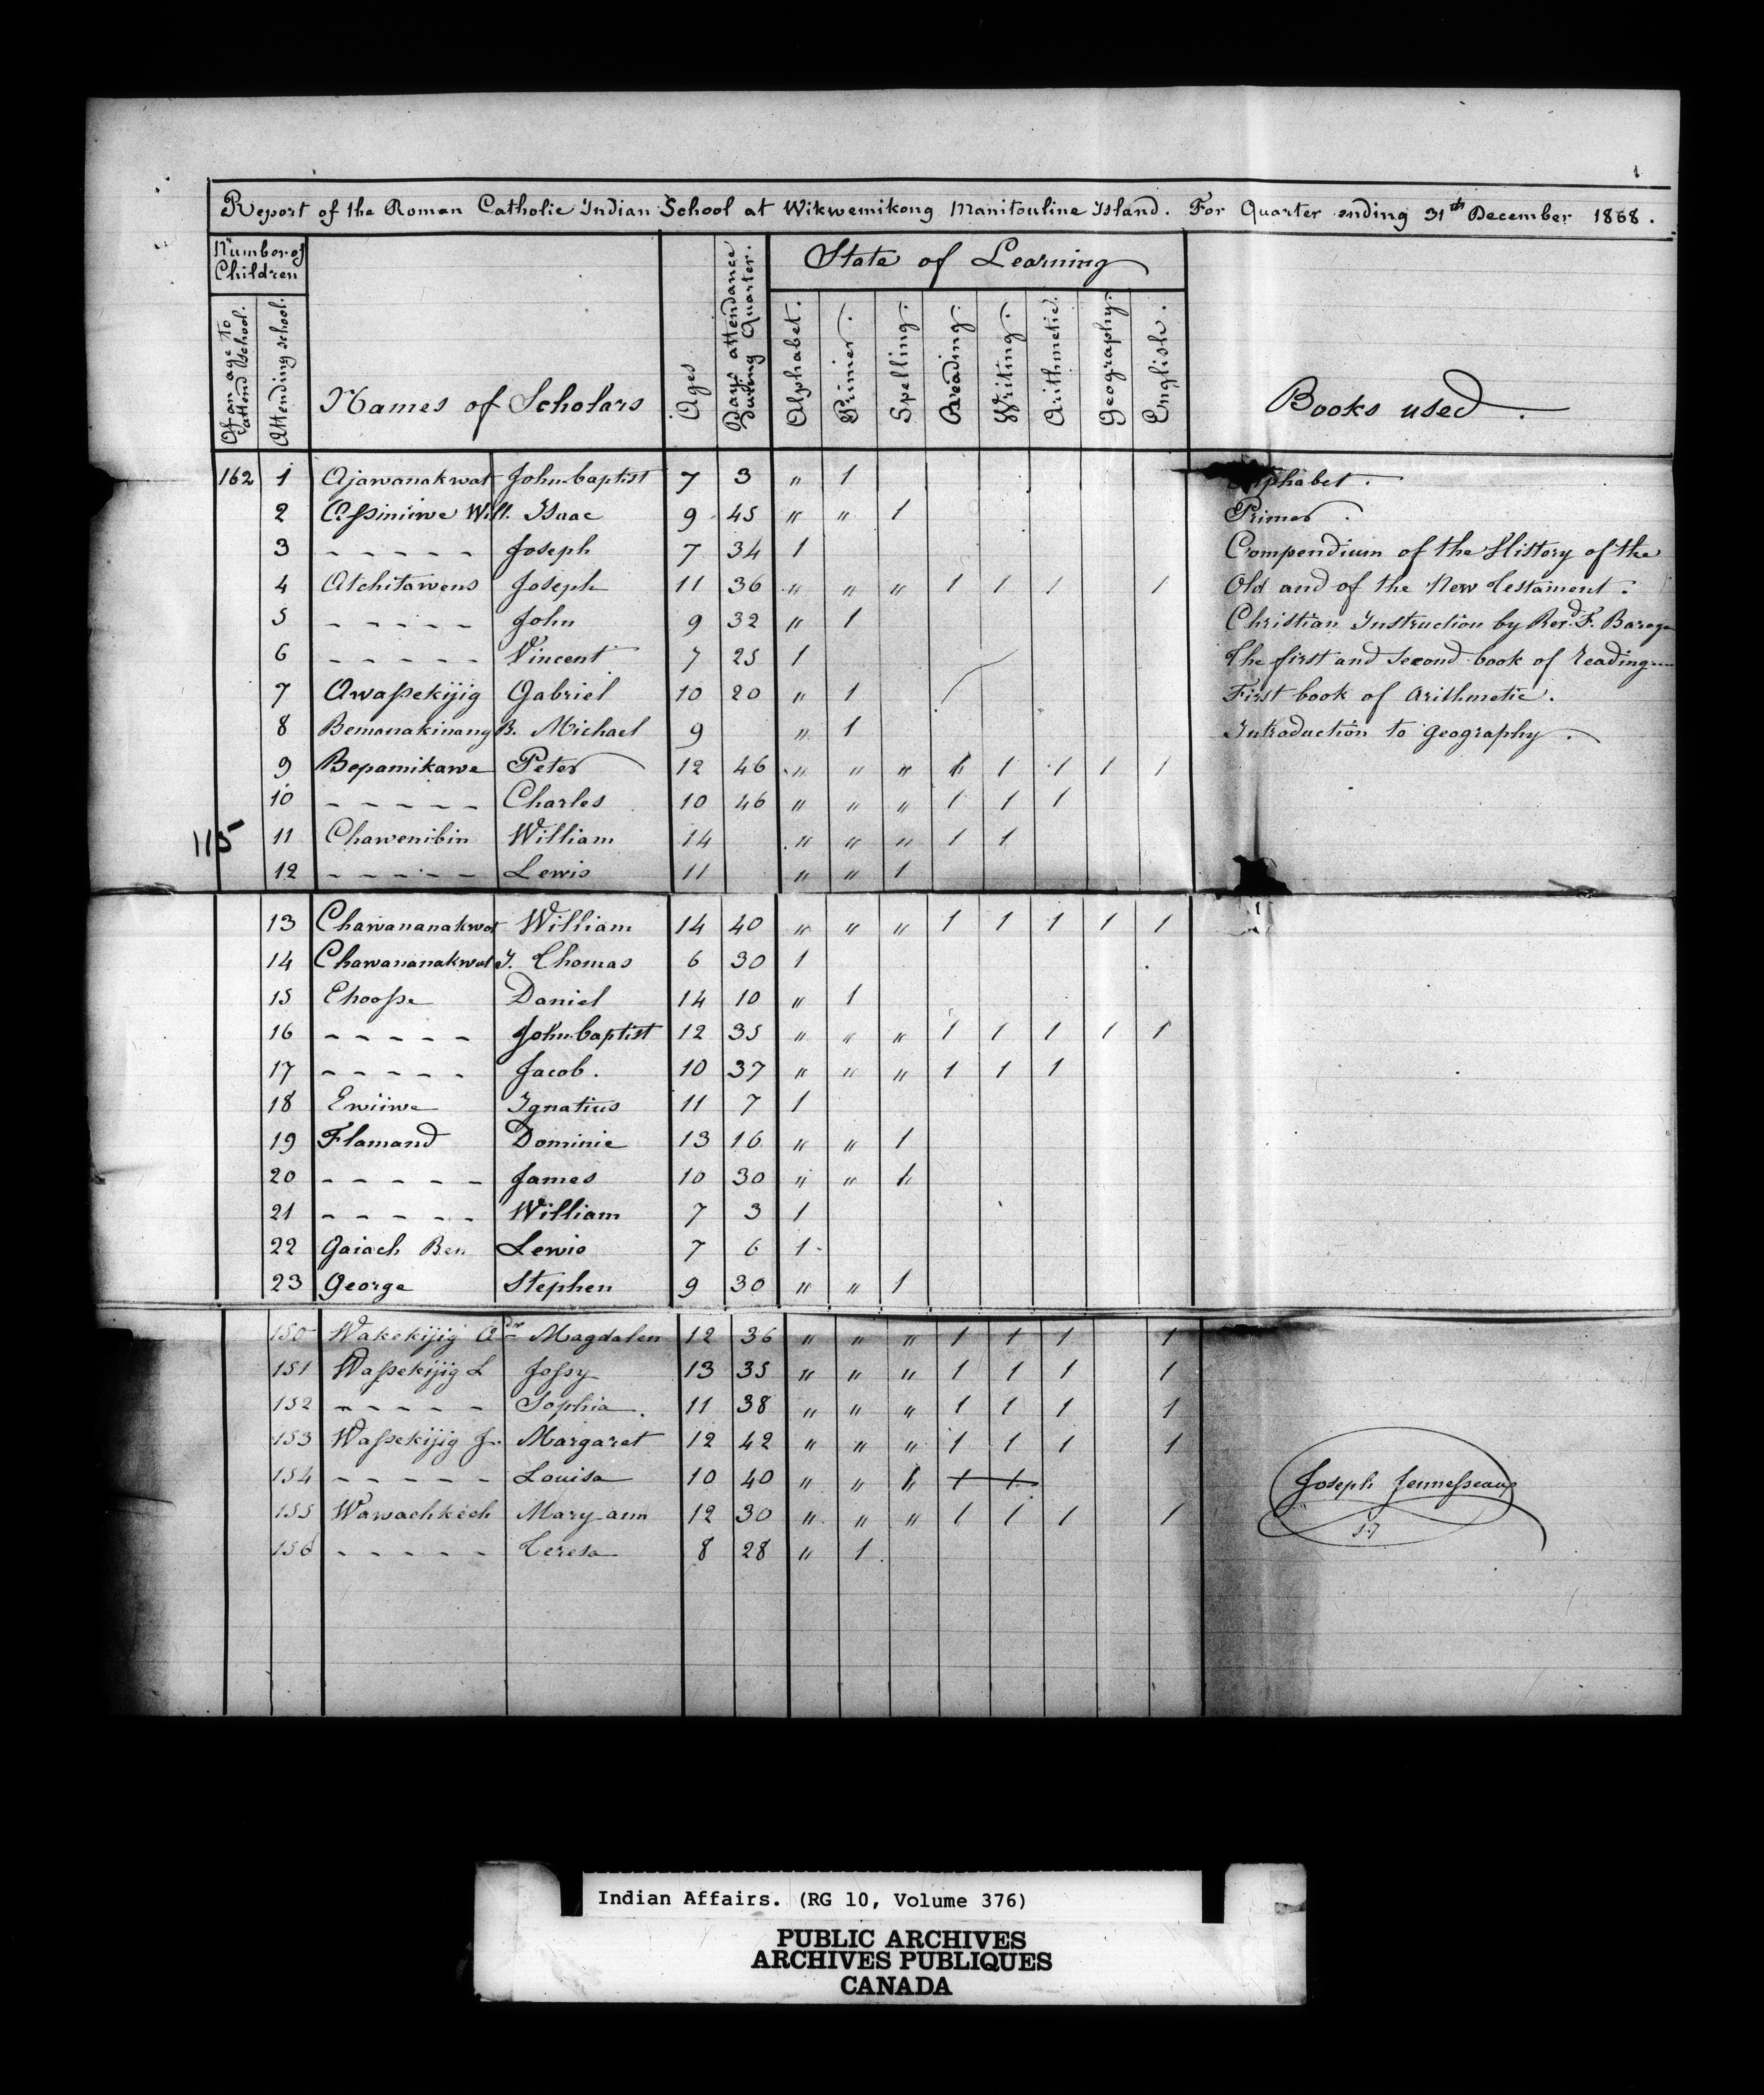 1
Report of the Roman Catholic Indian School at Wikwemikong Manitouline Island. For Quarter ending 31th December 1868.
Number of Children
Of an age to attend school.
Attending school.
Names of Scholars
Ages
Days attendance during Quarter.
State of Learning
Alphabet. Primer. Spelling. Reading. Writing. Arithmetic. Geography. English.
Books used.
162 1 Ajawanakwat John-baptist 7 3 " 1 Alphabet.
2 Assiniiwe Will. Isaac 9 45 " " 1 Primer.
3 - - - - - Joseph 7 34 1 Compendium of the History of the
4 Atchitawens Joseph 11 36 " " " 1 1 1 1 Old and of the New Testament.
5 - - - - - John 9 32 " 1 Christian Instruction by Revd. F. Baraga
6 - - - - - Vincent 7 25 1 The first and second book of reading
7 Awassekijig Gabriel 10 20 " 1 First book of Arithmetic.
8 Bemanakinang B. Michael 9 " 1 Introduction to geography.
9 Bepamikawe Peter 12 46 " " " 1 1 1 1 1
10 - - - - - Charles 10 46 " " " 1 1 1
115 11 Chawenibin William 14 " " " 1 1
12 - - - - - Lewis 11 " " 1
13 Chawananakwat William 14 40 " " " 1 1 1 1 1
14 Chawananakwat I. Thomas 6 30 1
15 Ehoosse Daniel 14 10 " 1
16 - - - - - John-baptist 12 35 " " " 1 1 1 1 1
17 - - - - - Jacob. 10 37 " " " 1 1 1
18 Ewiiwe Ignatius 11 7 1
19 Flamand Dominic 13 16 " " 1
20 - - - - - James 10 30 " " 1
21 - - - - - William 7 3 1
22 Gaiach Ben Lewis 7 6 1
23 George Stephen 9 30 " " 1
150 Wakekijig Magdalen 12 36 " " " 1 1 1 1
151 Wassekijig L Jossy 13 35 " " " 1 1 1 1
152 - - - - - Sophia. 11 38 " " " 1 1 1 1
153 Wassekijig J. Margaret 12 42 " " " 1 1 1 1
154 - - - - - Louisa 10 40 " " 1 1 1
155 Wawachkech Mary-ann 12 30 " " " 1 1 1 1
156 - - - - - Teresa 8 28 " 1
Joseph Jennesseaux
S.J
Indian Affairs. (RG 10, Volume 376)
PUBLIC ARCHIVES
ARCHIVES PUBLIQUES
CANADA